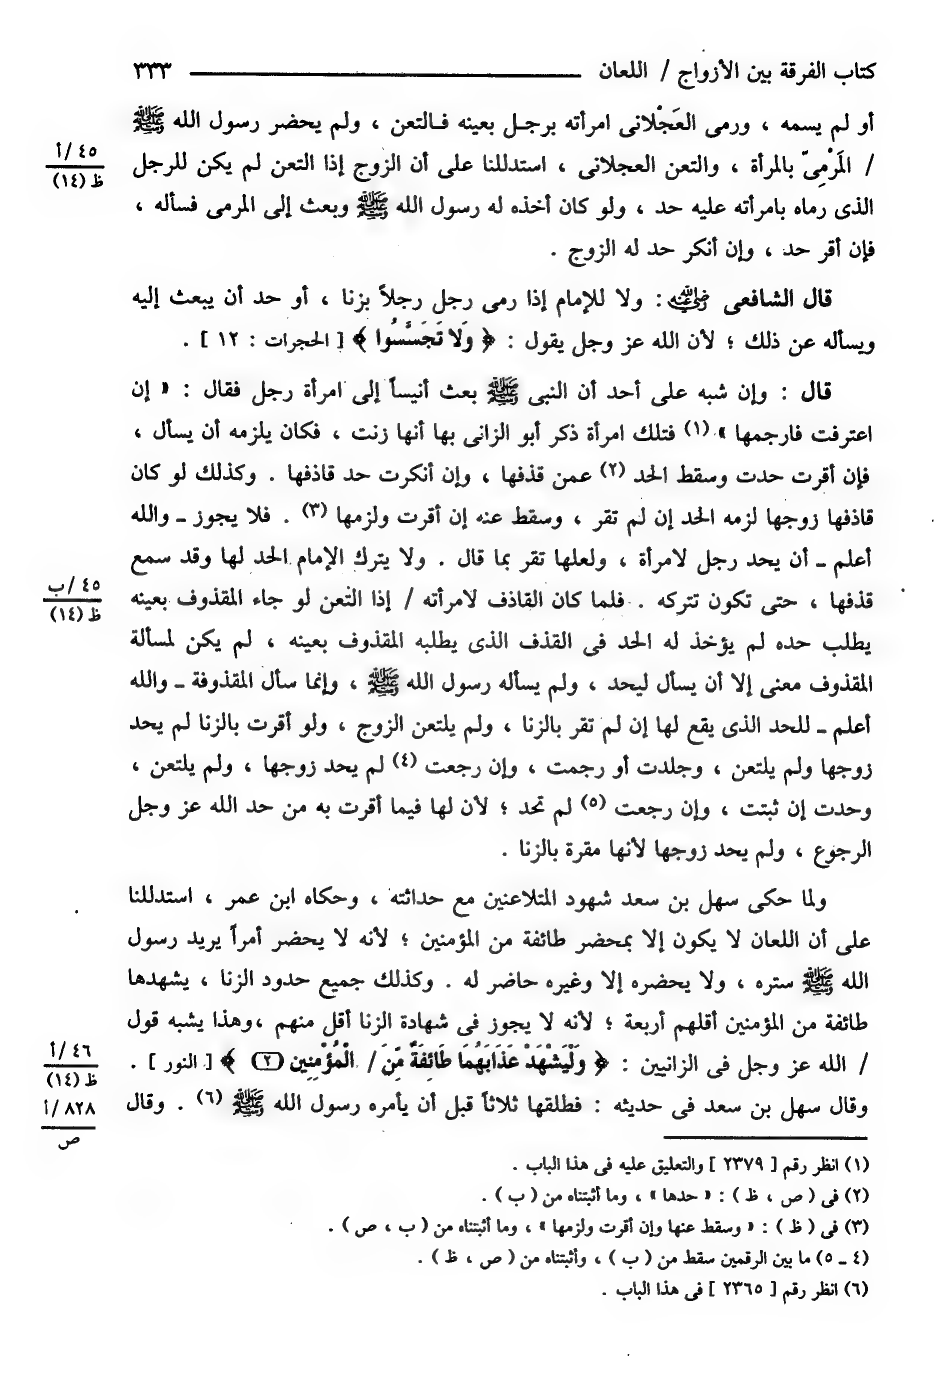 كتاب الفرقة بين الأزواج / اللعان ٣٣٣
أو لم يسمه ، ورمى العَجْلانى امرأته برجـل بعينه فـالتعن ، ولم يحضر رسول الله ﷺ
/ المَرْمِىّ بالمرأة ، والتعن العجلانى ، استدللنا على أن الزوج إذا التعن لم يكن للرجل
٤٥ /أ
ظ (١٤)
الذى رماه بامرأته عليه حد ، ولو كان أخذه له رسول الله ﷺ وبعث إلى المرمى فسأله ،
فإن أقر حد ، وإن أنكر حد له الزوج .
قال الشافعى رضي الله عنه : ولا للإمام إذا رمى رجل رجلاً بزنا ، أو حد أن يبعث إليه
ويسأله عن ذلك ؛ لأن الله عز وجل يقول : ﴿ وَلا تَجَسَّسُوا ﴾ [ الحجرات : ١٢ ] .
قال : وإن شبه على أحد أن النبى ﷺ بعث أنيساً إلى امرأة رجل فقال : « إن
اعترفت فارجمها » (١) فتلك امرأة ذكر أبو الزانى بها أنها زنت ، فكان يلزمه أن يسأل ،
فإن أقرت حدت وسقط الحد (٢) عمن قذفها ، وإن أنكرت حد قاذفها . وكذلك لو كان
قاذفها زوجها لزمه الحد إن لم تقر ، وسقط عنه إن أقرت ولزمها (٣) . فلا يجوز ـ والله
أعلم ـ أن يحد رجل لامرأة ، ولعلها تقر بما قال . ولا يترك الإمام الحد لها وقد سمع
قذفها ، حتى تكون تتركه . فلما كان القاذف لامرأته / إذا التعن لو جاء المقذوف بعينه
٤٥ /ب
ظ (١٤)
يطلب حده لم يؤخذ له الحد فى القذف الذى يطلبه المقذوف بعينه ، لم يكن لمسألة
المقذوف معنى إلا أن يسأل ليحد ، ولم يسأله رسول الله ﷺ ، وإنما سأل المقذوفة ـ والله
أعلم ـ للحد الذى يقع لها إن لم تقر بالزنا ، ولم يلتعن الزوج ، ولو أقرت بالزنا لم يحد
زوجها ولم يلتعن ، وجلدت أو رجمت ، وإن رجعت (٤) لم يحد زوجها ، ولم يلتعن ،
وحدت إن ثبتت ، وإن رجعت (٥) لم تحد ؛ لأن لها فيما أقرت به من حد الله عز وجل
الرجوع ، ولم يحد زوجها لأنها مقرة بالزنا .
ولما حكى سهل بن سعد شهود المتلاعنين مع حداثته ، وحكاه ابن عمر ، استدللنا
على أن اللعان لا يكون إلا بمحضر طائفة من المؤمنين ؛ لأنه لا يحضر أمراً يريد رسول
الله ﷺ ستره ، ولا يحضره إلا وغيره حاضر له . وكذلك جميع حدود الزنا ، يشهدها
طائفة من المؤمنين أقلهم أربعة ؛ لأنه لا يجوز فى شهادة الزنا أقل منهم ،وهذا يشبه قول
/ الله عز وجل فى الزانيين : ﴿ وَلْيَشْهَدْ عَذَابَهُمَا طَائِفَةٌ مِّنَ / الْمُؤْمِنِينَ (٢) ﴾ [ النور ] .
٤٦ /أ
ظ (١٤)
٨٢٨ /أ
ص
وقال سهل بن سعد فى حديثه : فطلقها ثلاثاً قبل أن يأمره رسول الله ﷺ (٦) . وقال
(١) انظر رقم [ ٢٣٧٩ ] والتعليق عليه فى هذا الباب .
(٢) فى ( ص ، ظ ) : « حدها » ، وما أثبتناه من ( ب ) .
(٣) فى ( ظ ) : « وسقط عنها وإن أقرت ولزمها » ، وما أثبتناه من ( ب ، ص ) .
(٤ ـ ٥) ما بين الرقمين سقط من ( ب ) ، وأثبتناه من ( ص ، ظ ) .
(٦) انظر رقم [ ٢٣٦٥ ] فى هذا الباب .